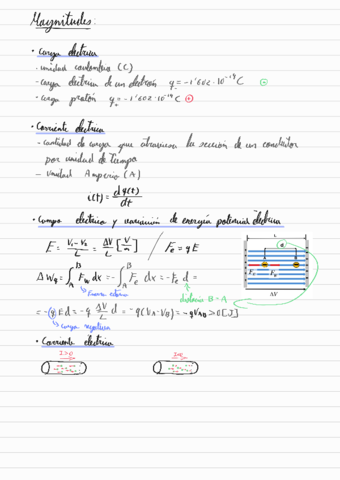 Magnitudes:
• Carga eléctrica
- unidad coulombio (C)
- carga eléctrica de un electrón q = -1'602·10⁻¹⁹ C ⊖
- carga protón q = -1'602·10⁻¹⁹ C ⊕
• Corriente eléctrica
- cantidad de carga que atraviesa la sección de un conductor
por unidad de tiempo
- unidad Amperio (A)
i(t) = dq(t)/dt
• Campo eléctrico y variación de energía potencial eléctrica
E = (V₁-V₂)/L = ΔV/L [V/m] / Fe = q E
L
Fe Fe
ΔV
ΔWq = ∫_A^B Fm dx = -∫_A^B Fe dx = -Fe d =
Fuerza externa
distancia B-A
= -q E d = -q ΔV/L d = -q(VA-VB) = -qVAB > 0 [J]
carga negativa
• Corriente eléctrica
I>0
I<0